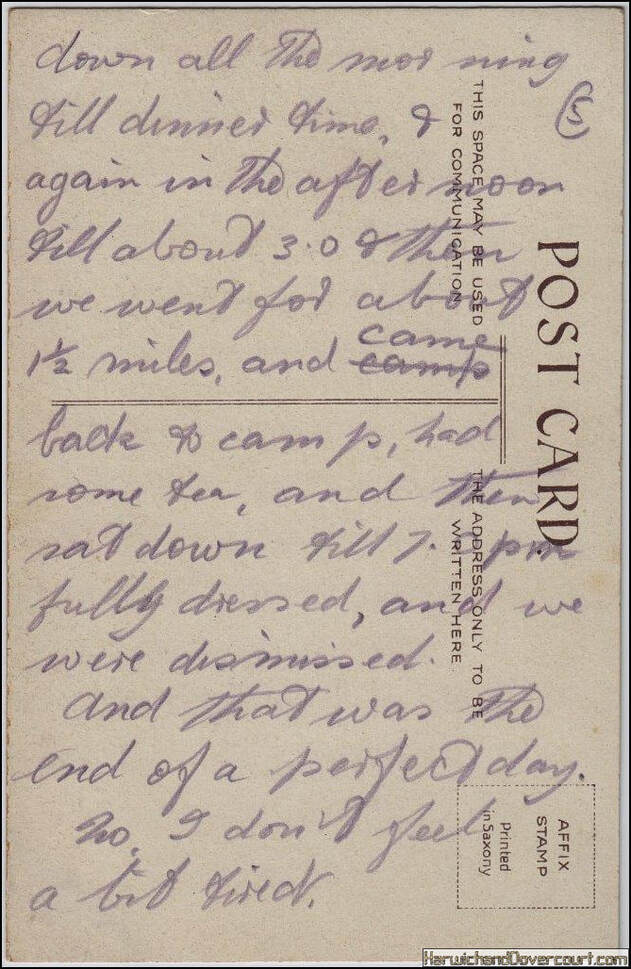 down all the mor ning
till dinner time, &
again in the after noon
till about 3.0 & then
we went for about
1½ miles, and came
camp
back to camp, had
some tea, and then
sat down till 7. 0pm
fully dressed, and we
were dismissed.
And that was the
end of a perfect day.
No, I don't feel
a bit tired.
(5)
POST CARD.
THIS SPACE MAY BE USED
FOR COMMUNICATION
THE ADDRESS ONLY TO BE
WRITTEN HERE.
AFFIX
STAMP
Printed
in Saxony
HarwichandDovercourt.com